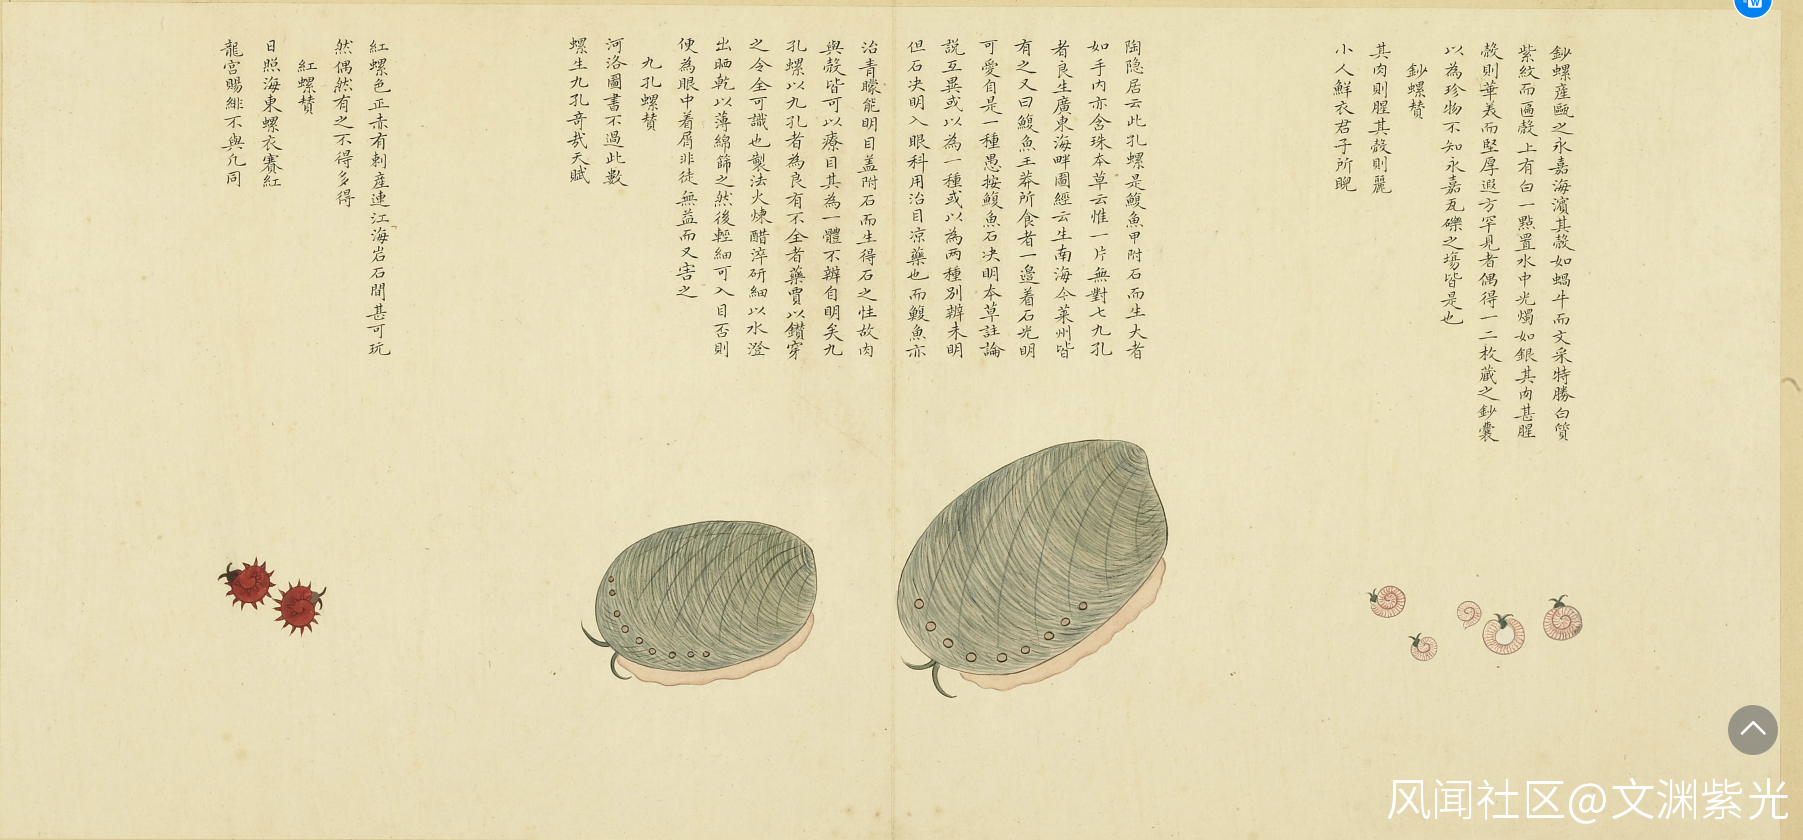 鈔螺産甌之永嘉海濱其殼如蝸牛而文采特勝白質
紫紋而匾殼上有白一點置水中光燭如銀其肉甚腥
殼則華美而堅厚遐方罕見者偶得一二枚藏之鈔囊
以為珍物不知永嘉瓦礫之塲皆是也
鈔螺賛
其肉則腥其殼則麗
小人鮮衣君子所睨
陶隐居云此孔螺是鰒魚甲附石而生大者
如手内亦含珠本草云惟一片無對七九孔
者良生廣東海畔圖經云生南海今萊州皆
有之又曰鰒魚王莽所食者一邉着石光明
可愛自是一種愚按鰒魚石决明本草註論
説互異或以為一種或以為两種别辦未明
但石决明入眼科用治目凉藥也而鰒魚亦
治青矇能明目盖附石而生得石之性故肉
與殼皆可以療目其為一體不辦自明矣九
孔螺以九孔者為良有不全者藥賈以鑽穿
之令全可識也製法火煉醋淬研細以水澄
出晒乾以薄綿篩之然後輕細可入目否則
便為眼中着屑非徒無益而又害之
九孔螺賛
河洛圖書不過此數
螺生九孔竒哉天賦
紅螺色正赤有刺産連江海岩石間甚可玩
然偶然有之不得多得
紅螺賛
日照海東螺衣賽紅
龍宫賜緋不與凢同
风闻社区@文渊紫光